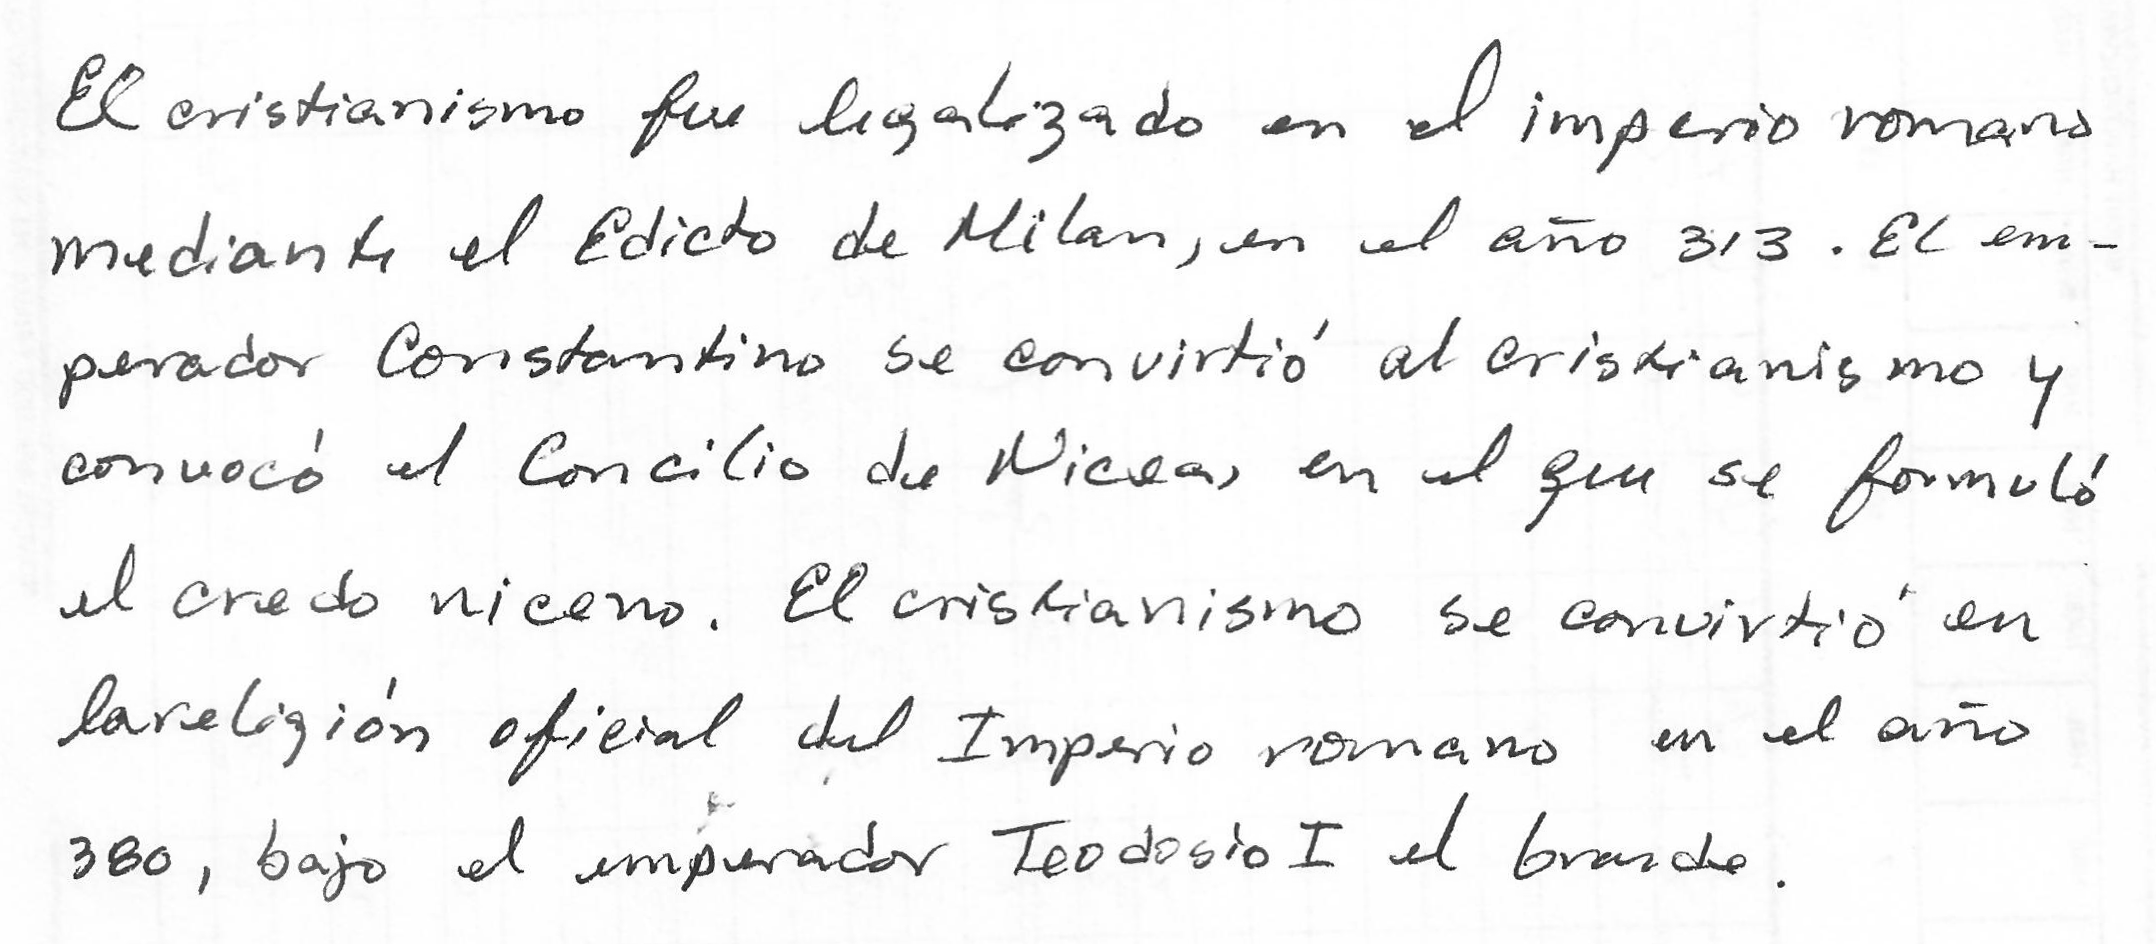 El cristianismo fue legalizado en el imperio romano
mediante el Edicto de Milan, en el año 313. El em-
perador Constantino se convirtió al cristianismo y
convocó el Concilio de Nicea, en el que se formuló
el credo niceno. El cristianismo se convirtió en
la religión oficial del Imperio romano en el año
380, bajo el emperador Teodosio I el Grande.